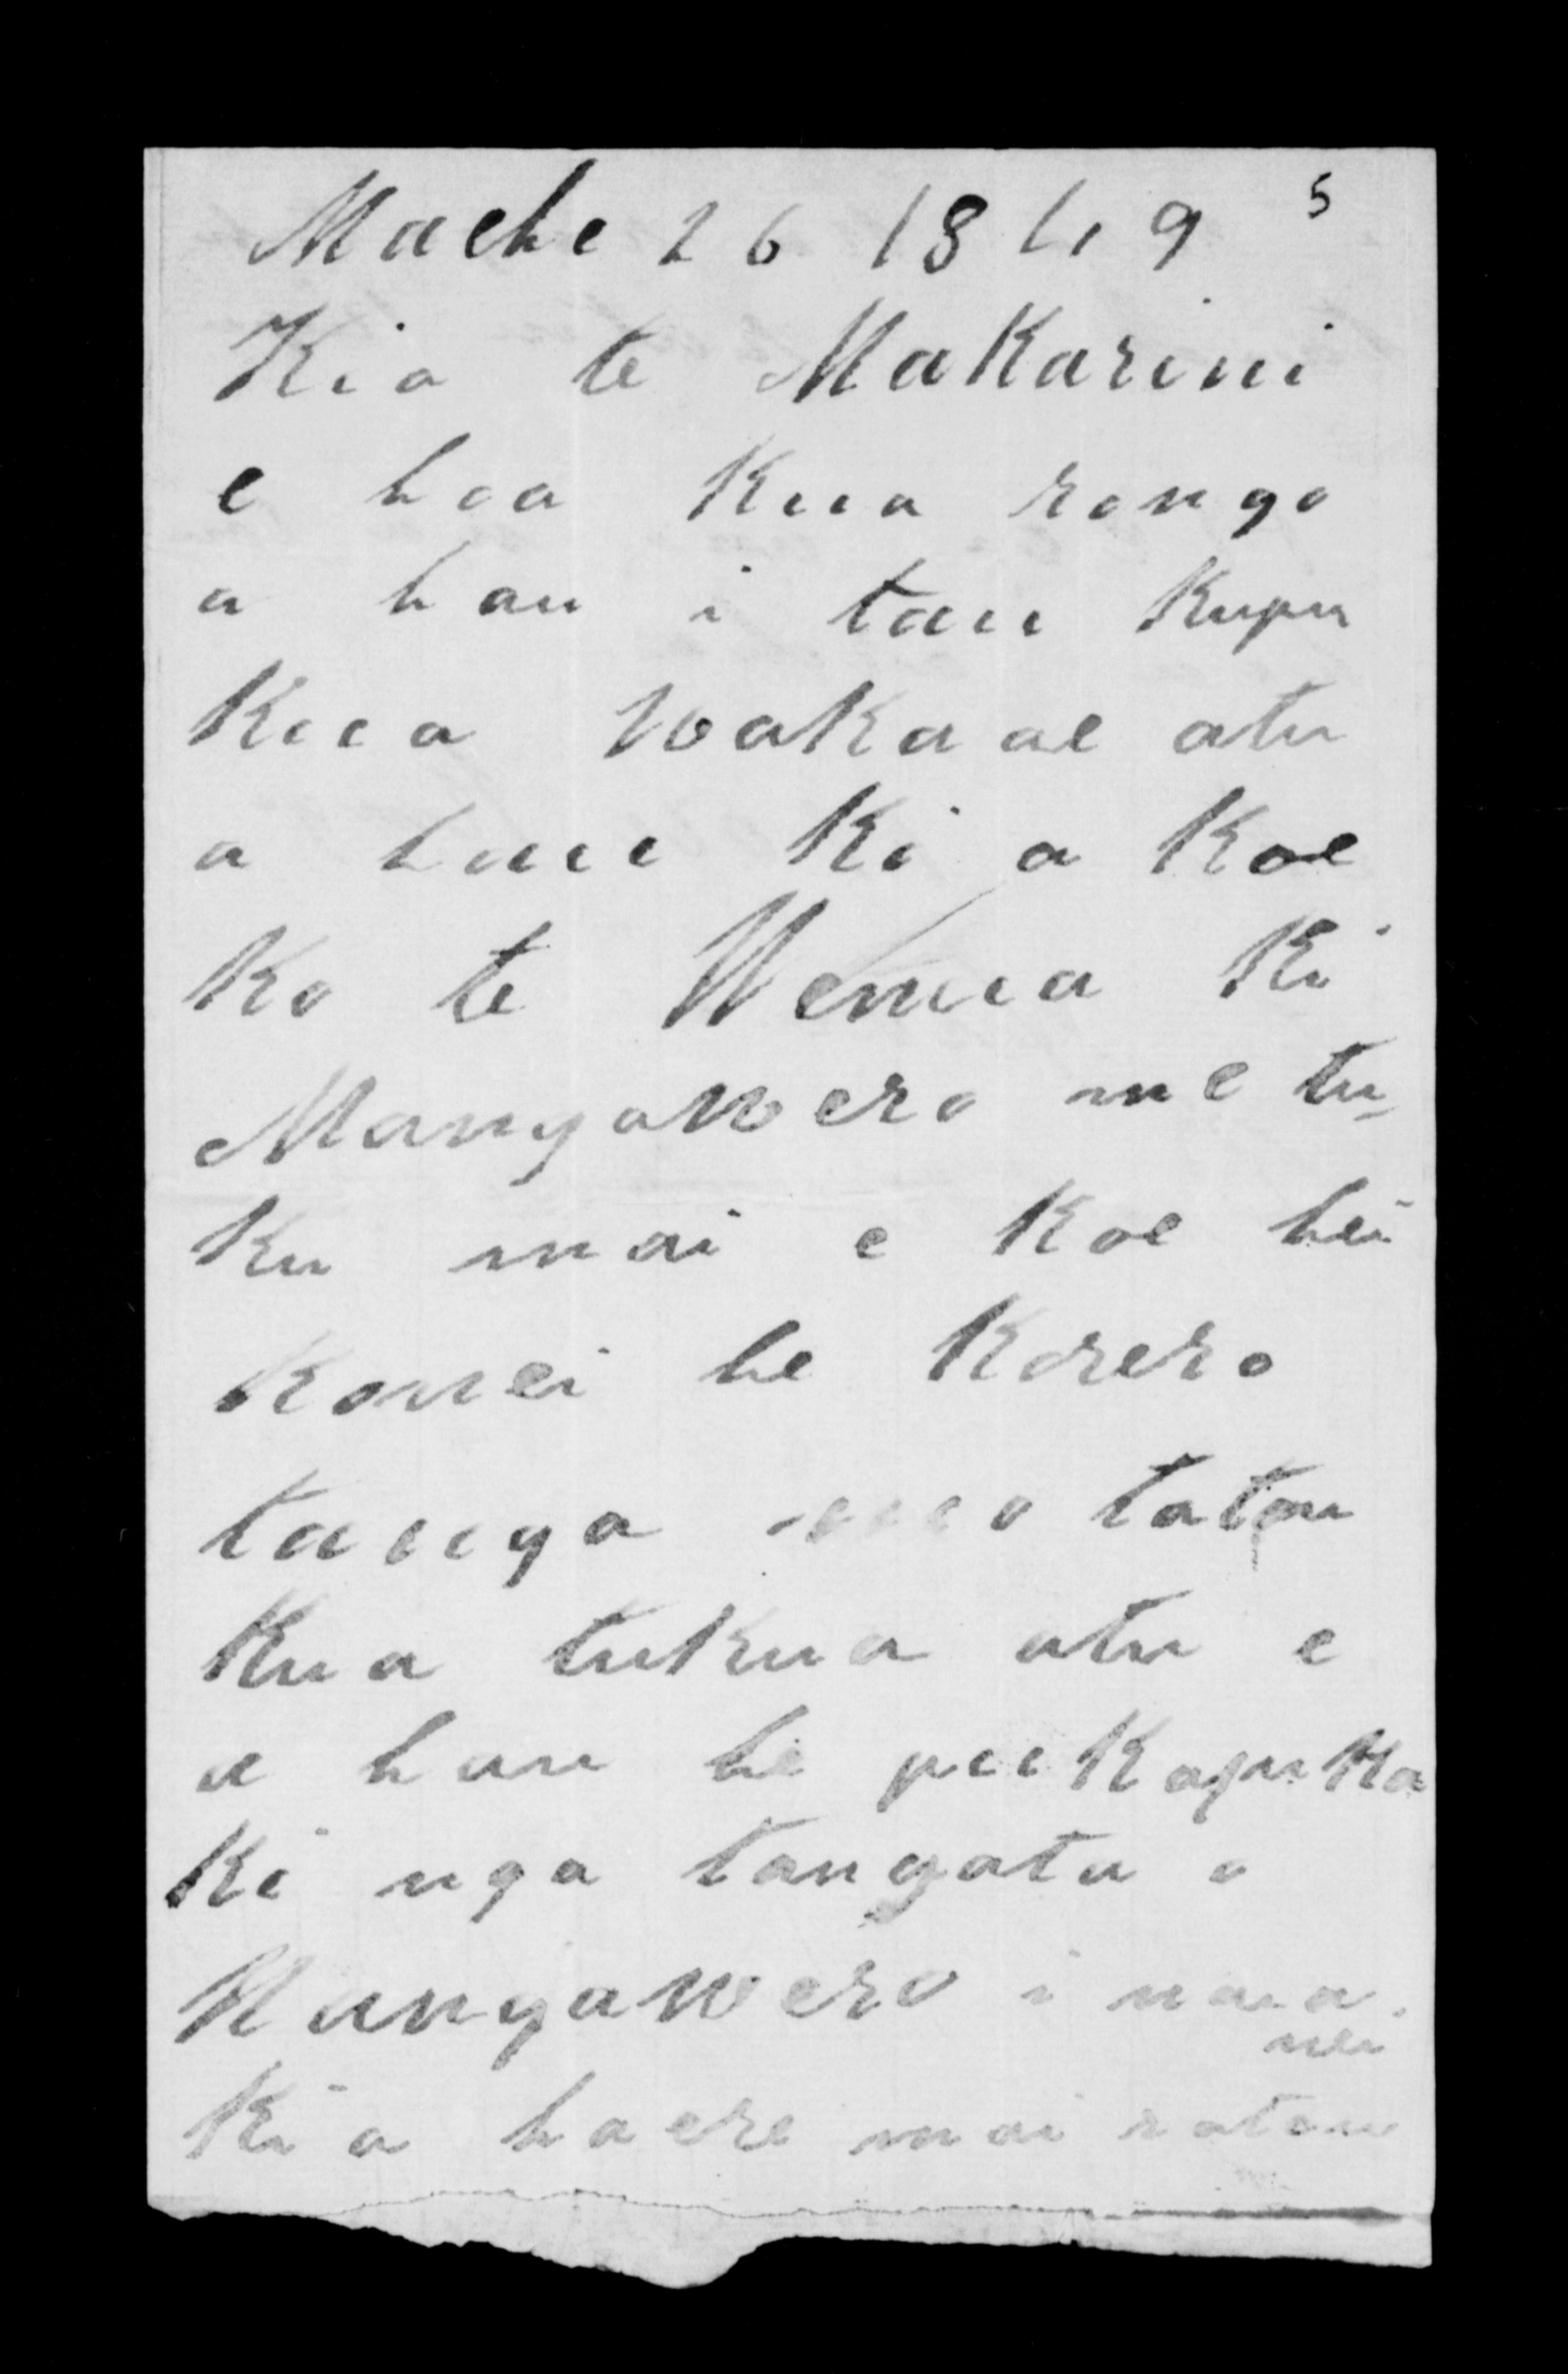 Maehe 26 1849 5
Kia te Makarini
e hoa Kua rongo
a hau i tau Kupu
Kua wakaae atu
a hau Ki a Koe
Ko te Wenua Ki
Mangawero me tu-
Ku mai e Koe hei
Konei he Korero
tanga mo tatou
Kua tukua atu e
a hau he puKapuKa
Ki nga tangata o
Mangawero i naia
nei
Ki a haere mai ratou